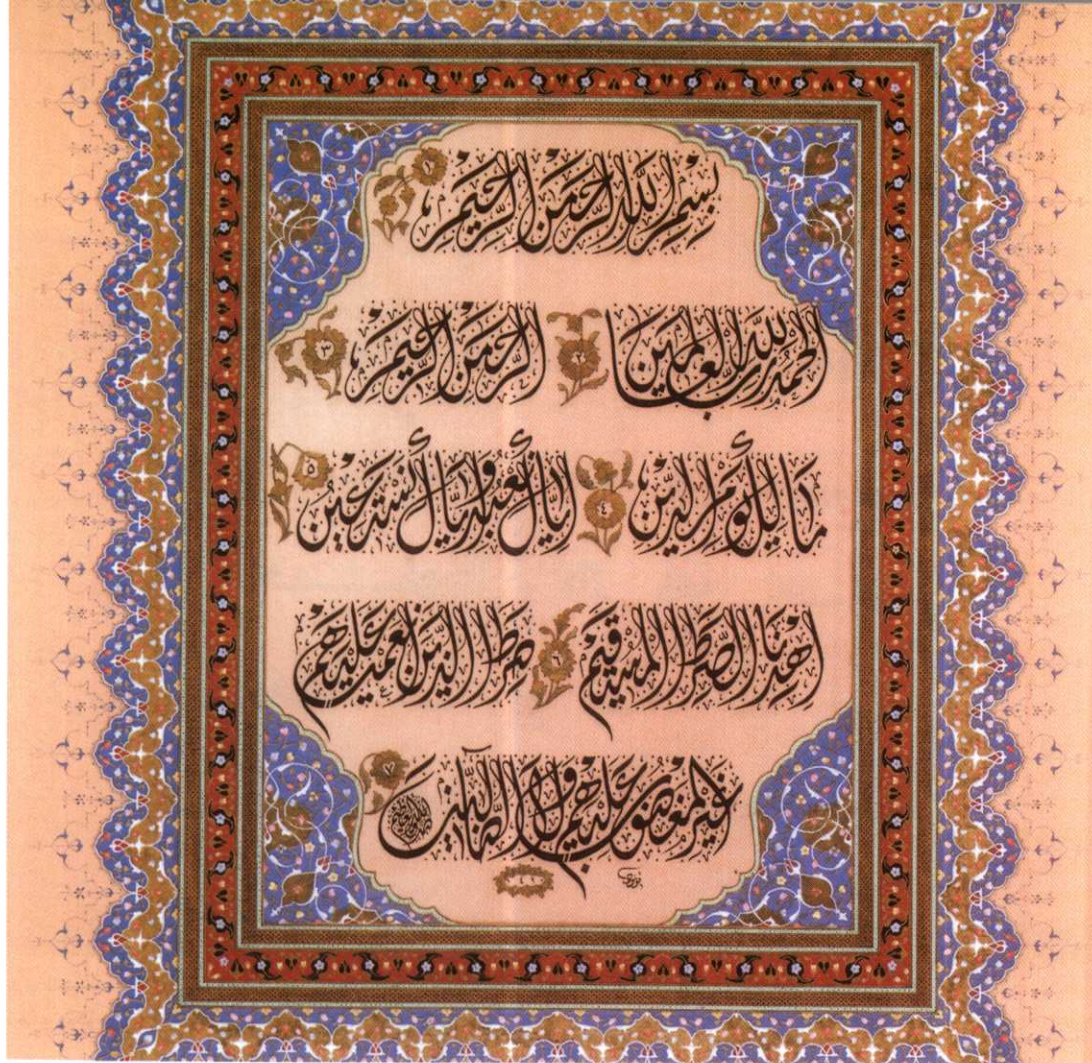 بسم الله الرحمن الرحيم ١
الحمد لله رب العالمين ٢ الرحمن الرحيم ٣
مالك يوم الدين ٤ إياك نعبد وإياك نستعين ٥
اهدنا الصراط المستقيم ٦ صراط الذين أنعمت عليهم
غير المغضوب عليهم ولا الضالين ٧